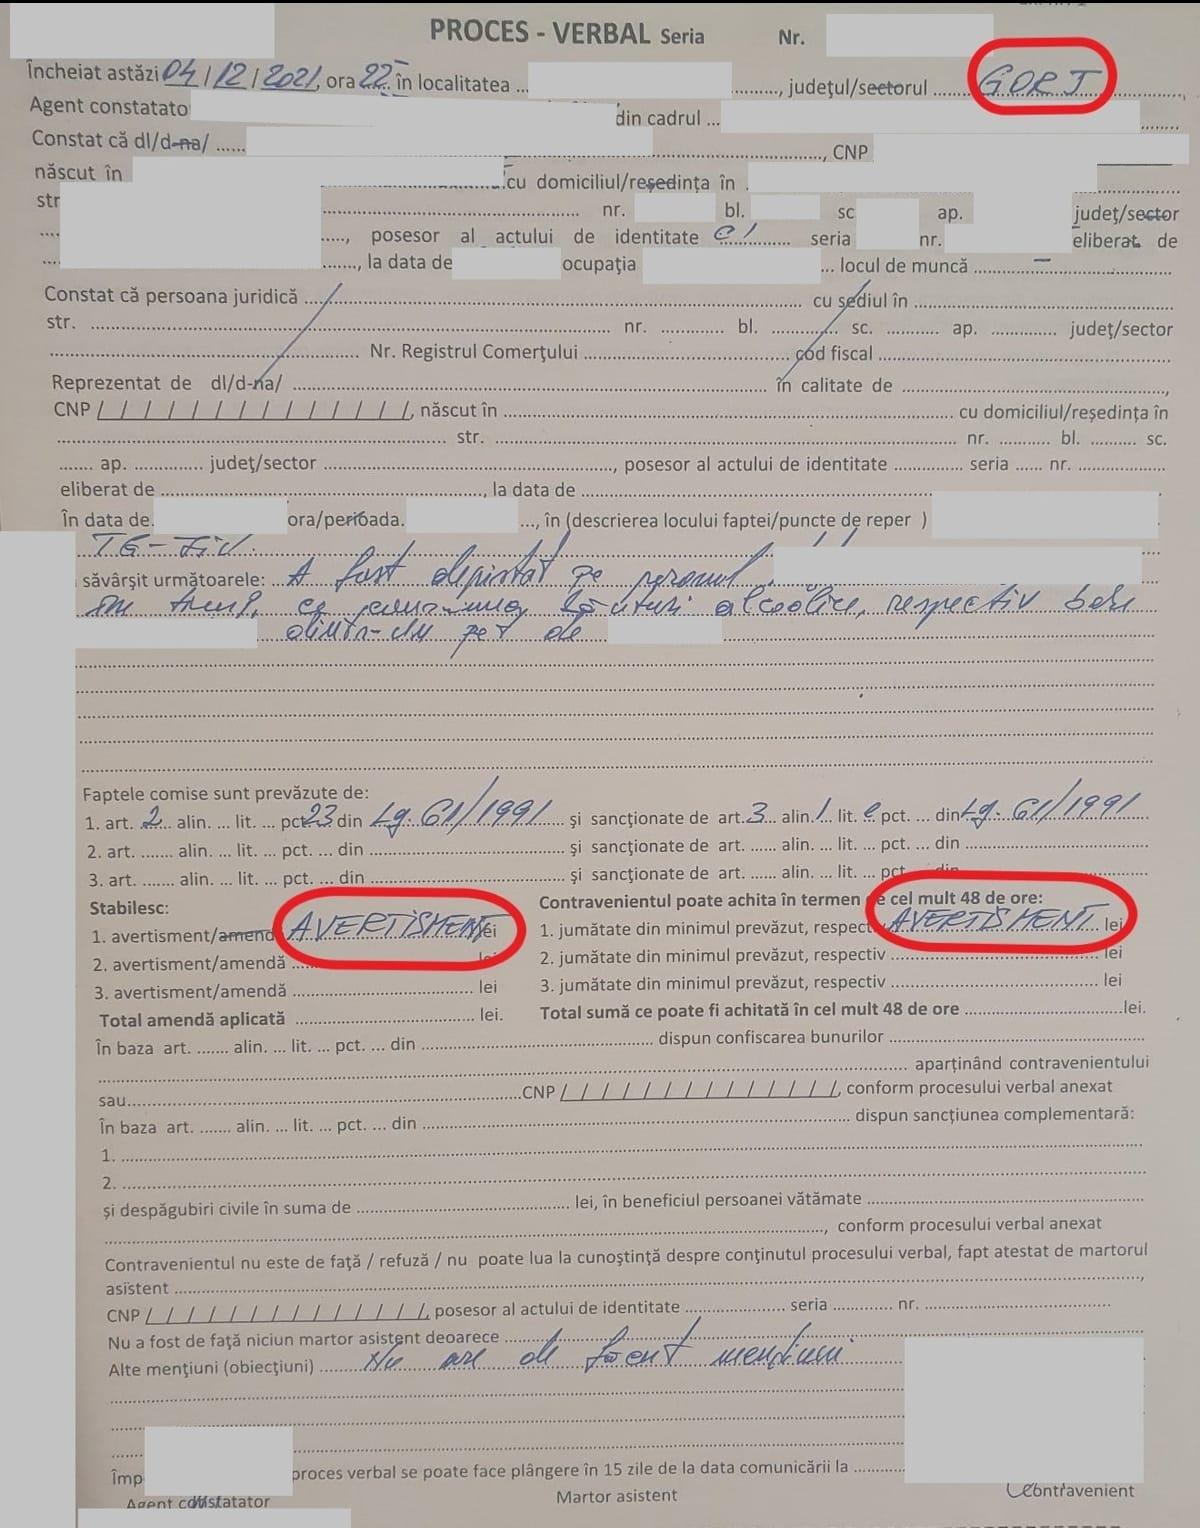 PROCES - VERBAL Seria Nr.
Încheiat astăzi 04/12/2021, ora 22 în localitatea ... ........., județul/sectorul ...... GORJ ......
Agent constatato din cadrul ...
Constat că dl/d-na/ ...... ......, CNP
născut în cu domiciliul/reședința în .
str ...... nr. bl. sc ap. județ/sector
.... ....., posesor al actului de identitate CI seria nr. eliberat de
.... ......., la data de ocupația ... locul de muncă ...... – ......
Constat că persoana juridică ...... cu sediul în ......
str. ...... nr. ...... bl. ...... sc. ...... ap. ...... județ/sector
...... Nr. Registrul Comerțului ...... cod fiscal ......
Reprezentat de dl/d-na/ ...... în calitate de ......,
CNP / / / / / / / / / / / / / /, născut în ...... cu domiciliul/reședința în
...... str. ...... nr. ...... bl. ...... sc.
...... ap. ...... județ/sector ......, posesor al actului de identitate ...... seria ...... nr. ......
eliberat de ......, la data de ......
În data de. ora/perioada. ..., în (descrierea locului faptei/puncte de reper )
TG-JIU.
săvârșit următoarele: A fost depistat pe peronul
băuturi alcoolice, respectiv bere
pet de
Faptele comise sunt prevăzute de:
1. art. 2 alin. ... lit. ... pct 23 din Lg. 61/1991 și sancționate de art. 3 alin. 1 lit. e pct. ... din Lg. 61/1991
2. art. ....... alin. ... lit. ... pct. ... din ...... și sancționate de art. ...... alin. ... lit. ... pct. ... din ......
3. art. ....... alin. ... lit. ... pct. ... din ...... și sancționate de art. ...... alin. ... lit. ... pct. ... din
Stabilesc: Contravenientul poate achita în termen de cel mult 48 de ore:
1. avertisment/amend AVERTISMENT lei 1. jumătate din minimul prevăzut, respect AVERTISMENT lei
2. avertisment/amendă ...... lei 2. jumătate din minimul prevăzut, respectiv ...... lei
3. avertisment/amendă ...... lei 3. jumătate din minimul prevăzut, respectiv ...... lei
Total amendă aplicată ...... lei. Total sumă ce poate fi achitată în cel mult 48 de ore ......lei.
În baza art. ....... alin. ... lit. ... pct. ... din ...... dispun confiscarea bunurilor ......
...... aparținând contravenientului
sau......CNP / / / / / / / / / / / / / /, conform procesului verbal anexat
În baza art. ....... alin. ... lit. ... pct. ... din ...... dispun sancțiunea complementară:
1. ......
2. ......
și despăgubiri civile în suma de ...... lei, în beneficiul persoanei vătămate ......
......, conform procesului verbal anexat
Contravenientul nu este de față / refuză / nu poate lua la cunoștință despre conținutul procesului verbal, fapt atestat de martorul
asistent ......,
CNP / / / / / / / / / / / / / /, posesor al actului de identitate ...... seria ...... nr. ......
Nu a fost de față niciun martor asistent deoarece ......
Alte mențiuni (obiecțiuni) ...... Nu are de făcut mențiuni
Împ proces verbal se poate face plângere în 15 zile de la data comunicării la ......
Agent constatator Martor asistent Contravenient